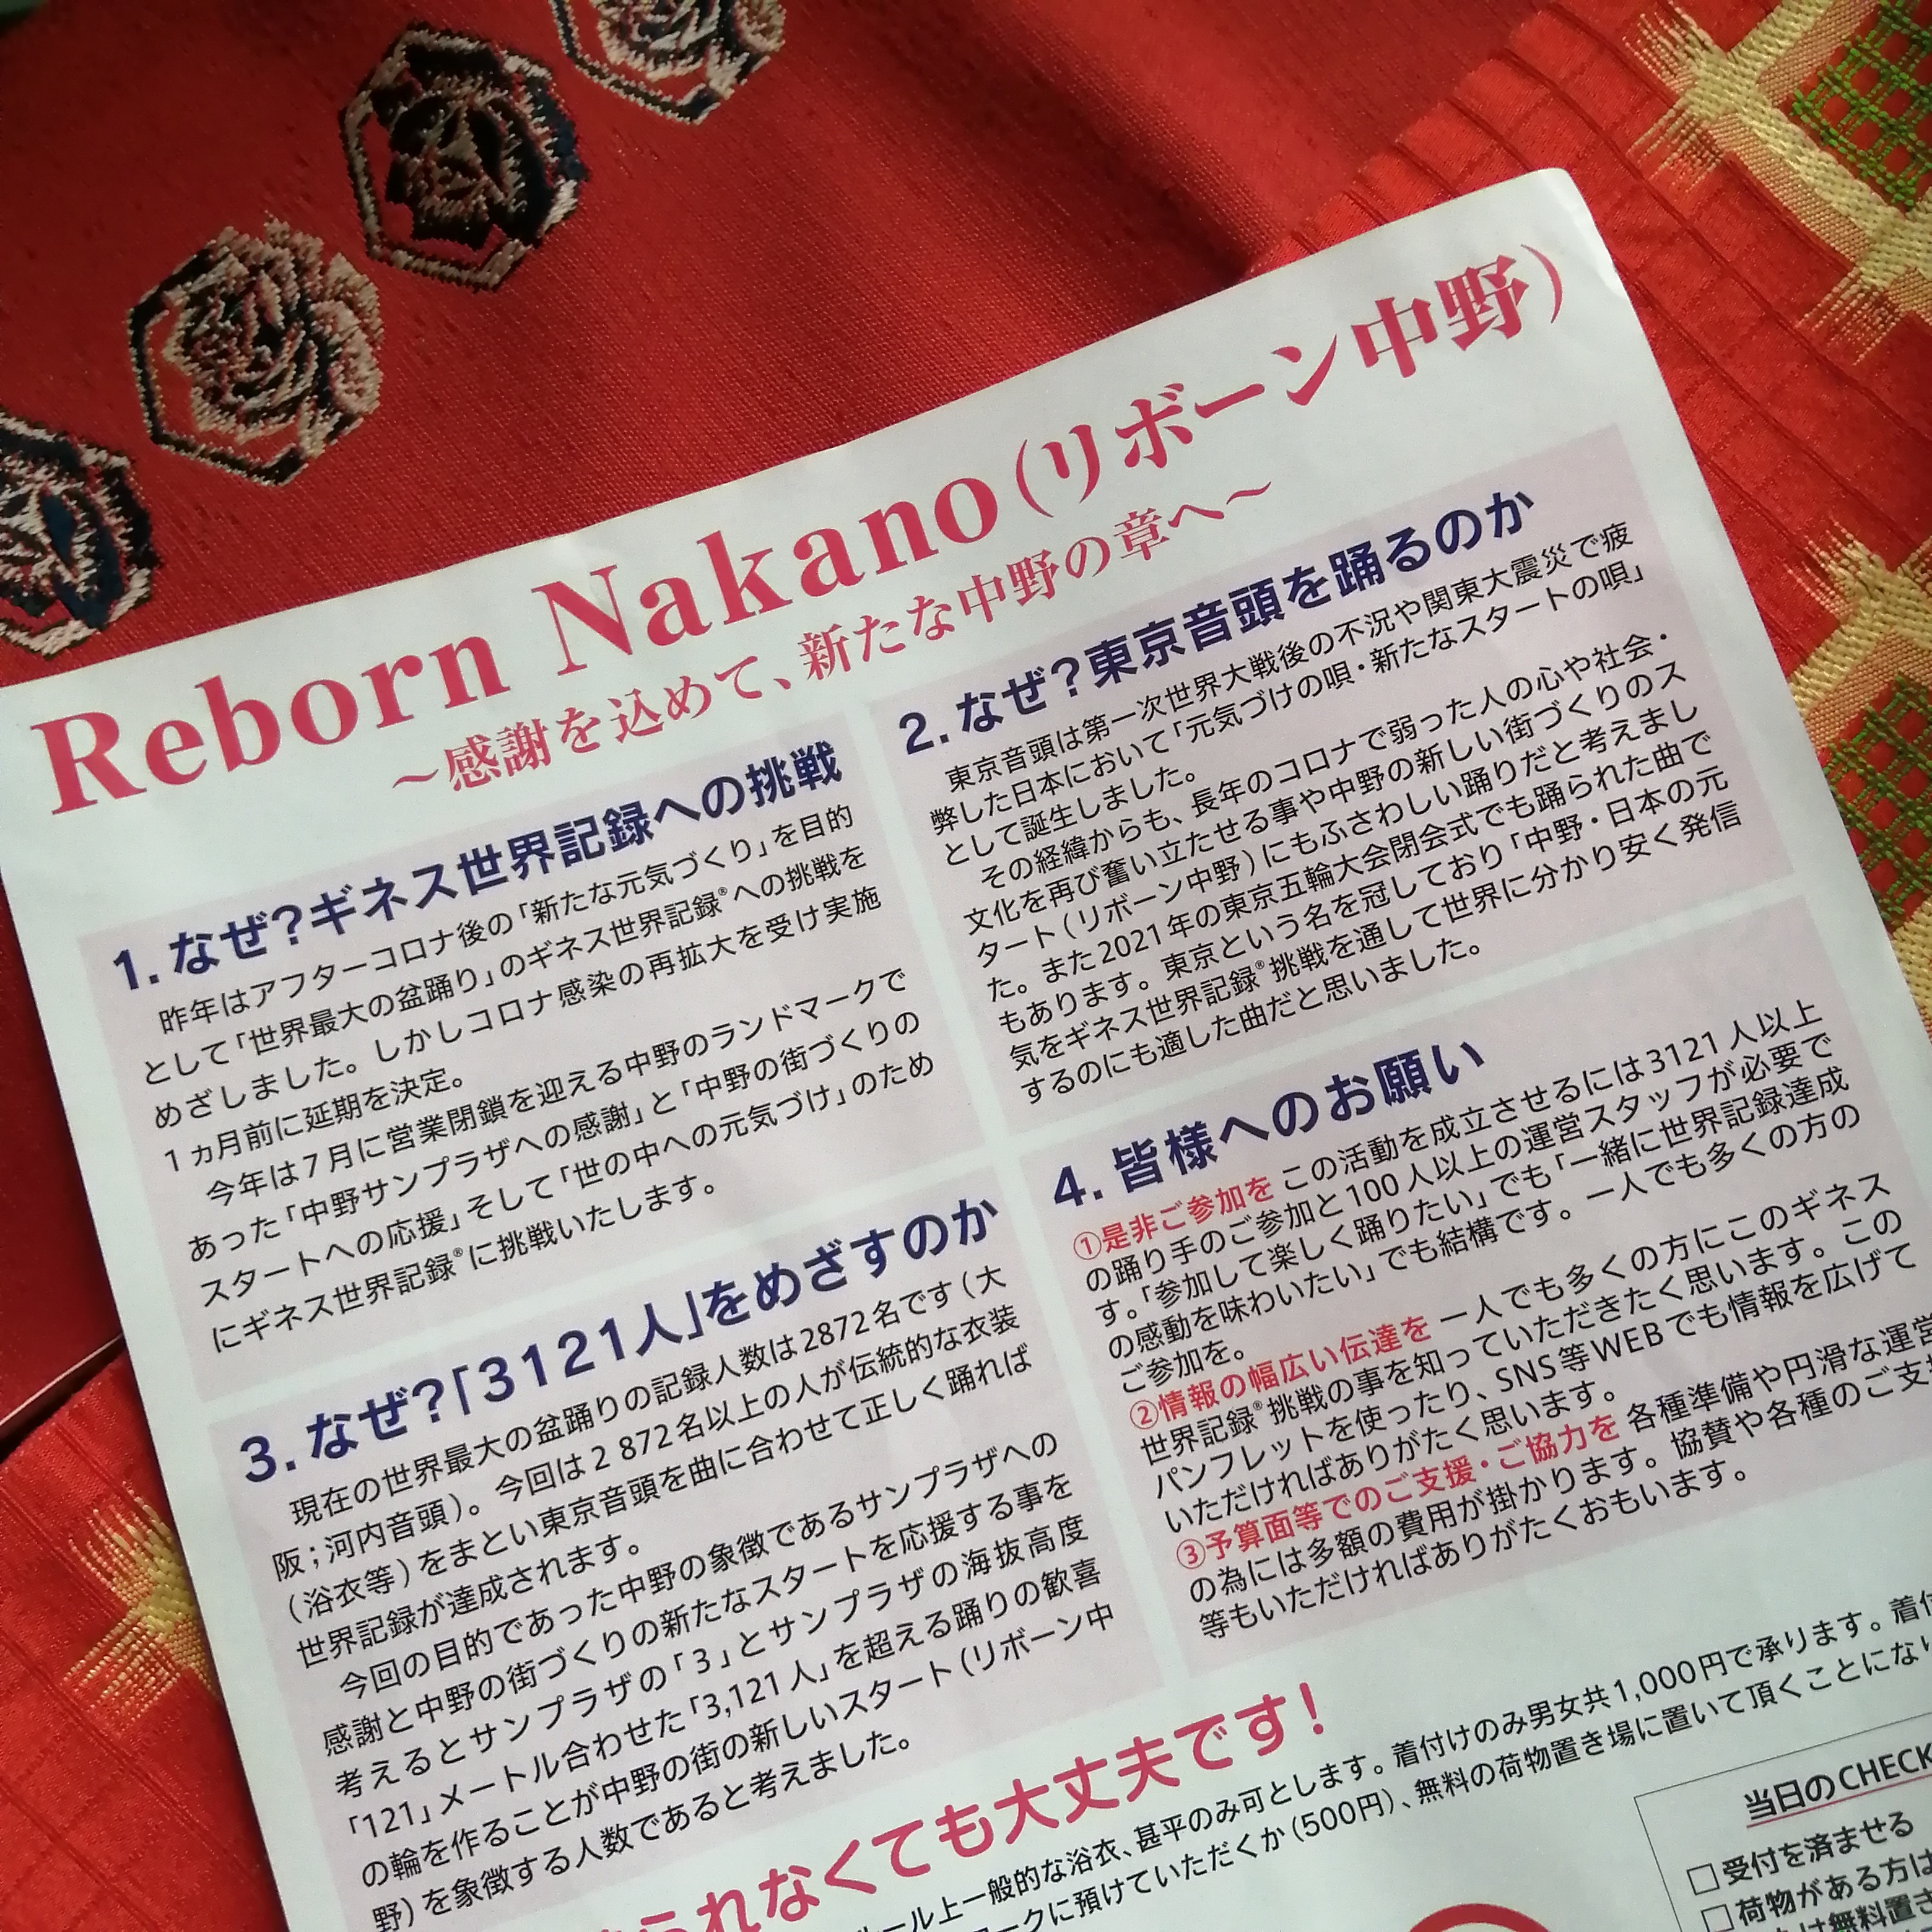 Reborn Nakano(リボーン中野)
〜感謝を込めて、新たな中野の章へ〜
1. なぜ?ギネス世界記録への挑戦
昨年はアフターコロナ後の「新たな元気づくり」を目的
として「世界最大の盆踊り」のギネス世界記録®への挑戦を
めざしました。しかしコロナ感染の再拡大を受け実施
1ヵ月前に延期を決定。
今年は7月に営業閉鎖を迎える中野のランドマークで
あった「中野サンプラザへの感謝」と「中野の街づくりの
スタートへの応援」そして「世の中への元気づけ」のため
にギネス世界記録®に挑戦いたします。
2. なぜ?東京音頭を踊るのか
東京音頭は第一次世界大戦後の不況や関東大震災で疲
弊した日本において「元気づけの唄・新たなスタートの唄」
として誕生しました。
その経緯からも、長年のコロナで弱った人の心や社会・
文化を再び奮い立たせる事や中野の新しい街づくりのス
タート(リボーン中野)にもふさわしい踊りだと考えまし
た。また2021年の東京五輪大会閉会式でも踊られた曲で
もあります。東京という名を冠しており「中野・日本の元
気をギネス世界記録®挑戦を通して世界に分かり安く発信
するのにも適した曲だと思いました。
3. なぜ?「3121人」をめざすのか
現在の世界最大の盆踊りの記録人数は2872名です(大
阪;河内音頭)。今回は2 872名以上の人が伝統的な衣装
(浴衣等)をまとい東京音頭を曲に合わせて正しく踊れば
世界記録が達成されます。
今回の目的であった中野の象徴であるサンプラザへの
感謝と中野の街づくりの新たなスタートを応援する事を
考えるとサンプラザの「3」とサンプラザの海抜高度
「121」メートル合わせた「3,121人」を超える踊りの歓喜
の輪を作ることが中野の街の新しいスタート(リボーン中
野)を象徴する人数であると考えました。
4. 皆様へのお願い
①是非ご参加を この活動を成立させるには3121人以上
の踊り手のご参加と100人以上の運営スタッフが必要で
す。「参加して楽しく踊りたい」でも「一緒に世界記録達成
の感動を味わいたい」でも結構です。一人でも多くの方の
ご参加を。
②情報の幅広い伝達を 一人でも多くの方にこのギネス
世界記録®挑戦の事を知っていただきたく思います。この
パンフレットを使ったり、SNS等WEBでも情報を広げて
いただければありがたく思います。
③予算面等でのご支援・ご協力を 各種準備や円滑な運営
の為には多額の費用が掛かります。協賛や各種のご支
等もいただければありがたくおもいます。
られなくても大丈夫です!
ルール上一般的な浴衣、甚平のみ可とします。着付けのみ男女共1,000円で承ります。着付
ークに預けていただくか(500円)、無料の荷物置き場に置いて頂くことにな
当日のCHECK
□受付を済ませる
□荷物がある方は
は無料置き